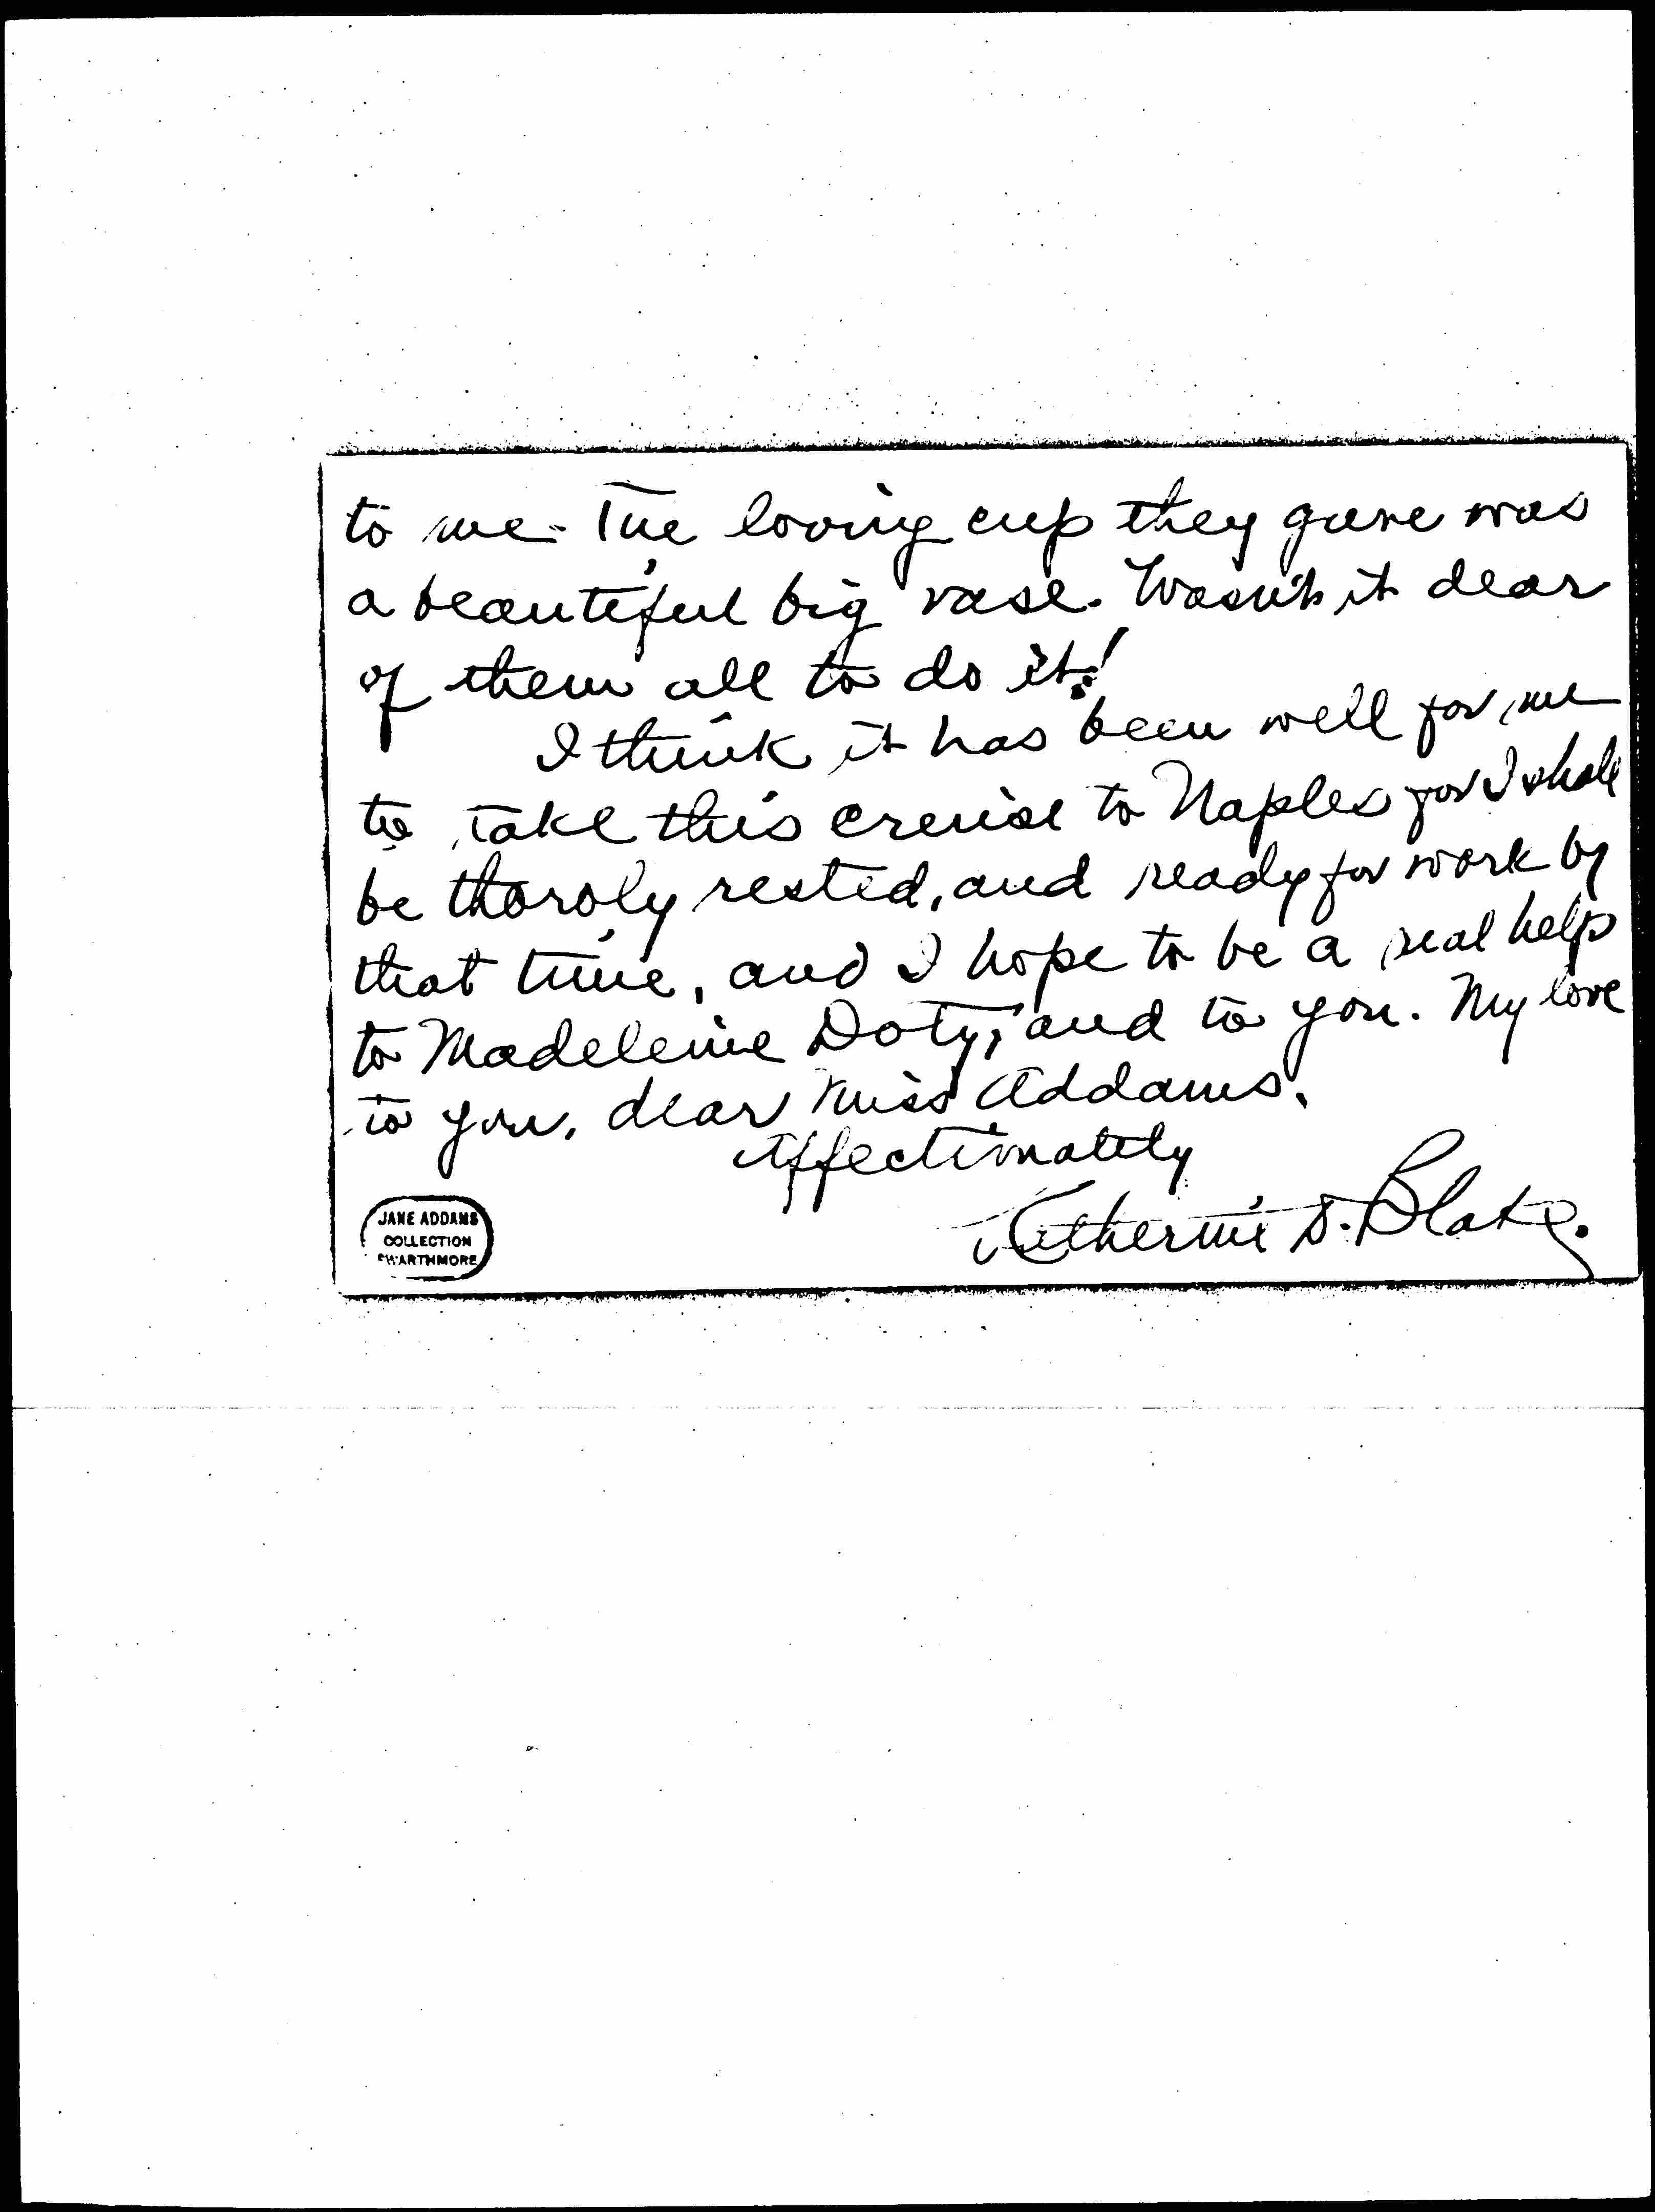 to me. The loving cup they gave was
a beautiful big vase. Wasn't it dear
of them all to do it!
I think it has been well for me
to take this cruise to Naples for I shall
be thoroly rested, and ready for work by
that time, and I hope to be a real help
to Madeleine Doty, and to you. My love
to you, dear Miss Addams.
Affectionately
Katherine D. Blake.
JANE ADDAMS
COLLECTION
SWARTHMORE